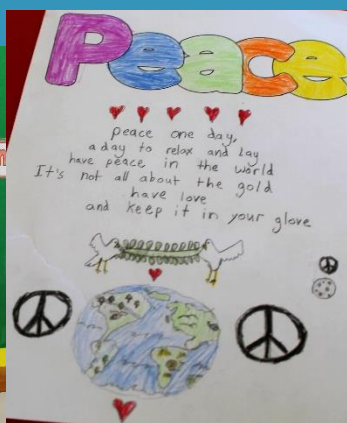 Peace
peace one day,
a day to relax and lay
have peace in the world
It's not all about the gold
have love
and keep it in your glove